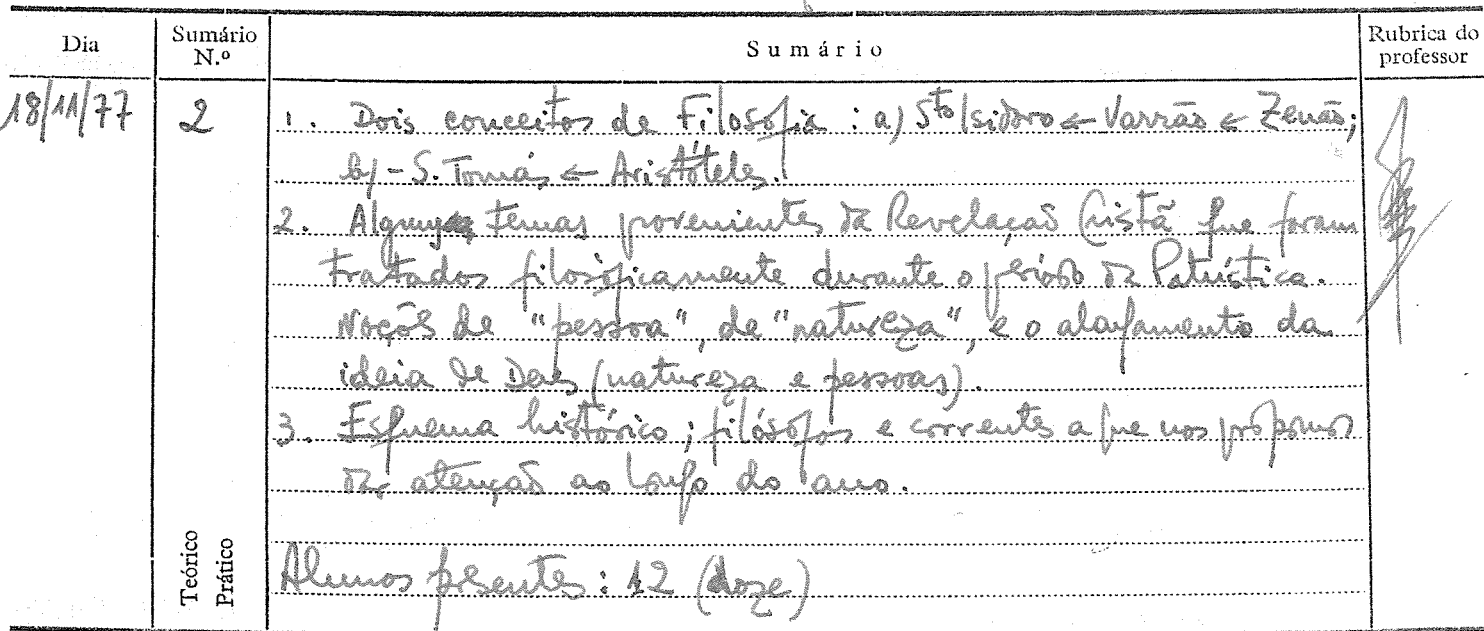 Dia Sumário N.º Sumário Rubrica do professor
18/11/77 2 1. Dois conceitos de Filosofia : a) Sto Isidoro ← Varrão ← Zenão;
b) - S. Tomás ← Aristóteles.
2. Alguns temas provenientes da Revelação Cristã que foram
tratados filosoficamente durante o período da Patrística.
Noções de "pessoa", de "natureza", e o alargamento da
ideia de Deus (natureza e pessoas).
3. Esquema histórico; filósofos e correntes a que nos propomos
dar atenção ao longo do ano.
Teórico
Prático
Alunos presentes : 12 (doze)